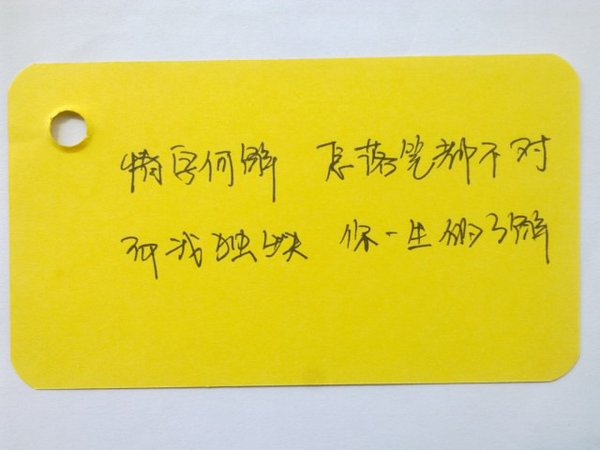 情字何解 怎落笔都不对
而我独缺 你一生的了解